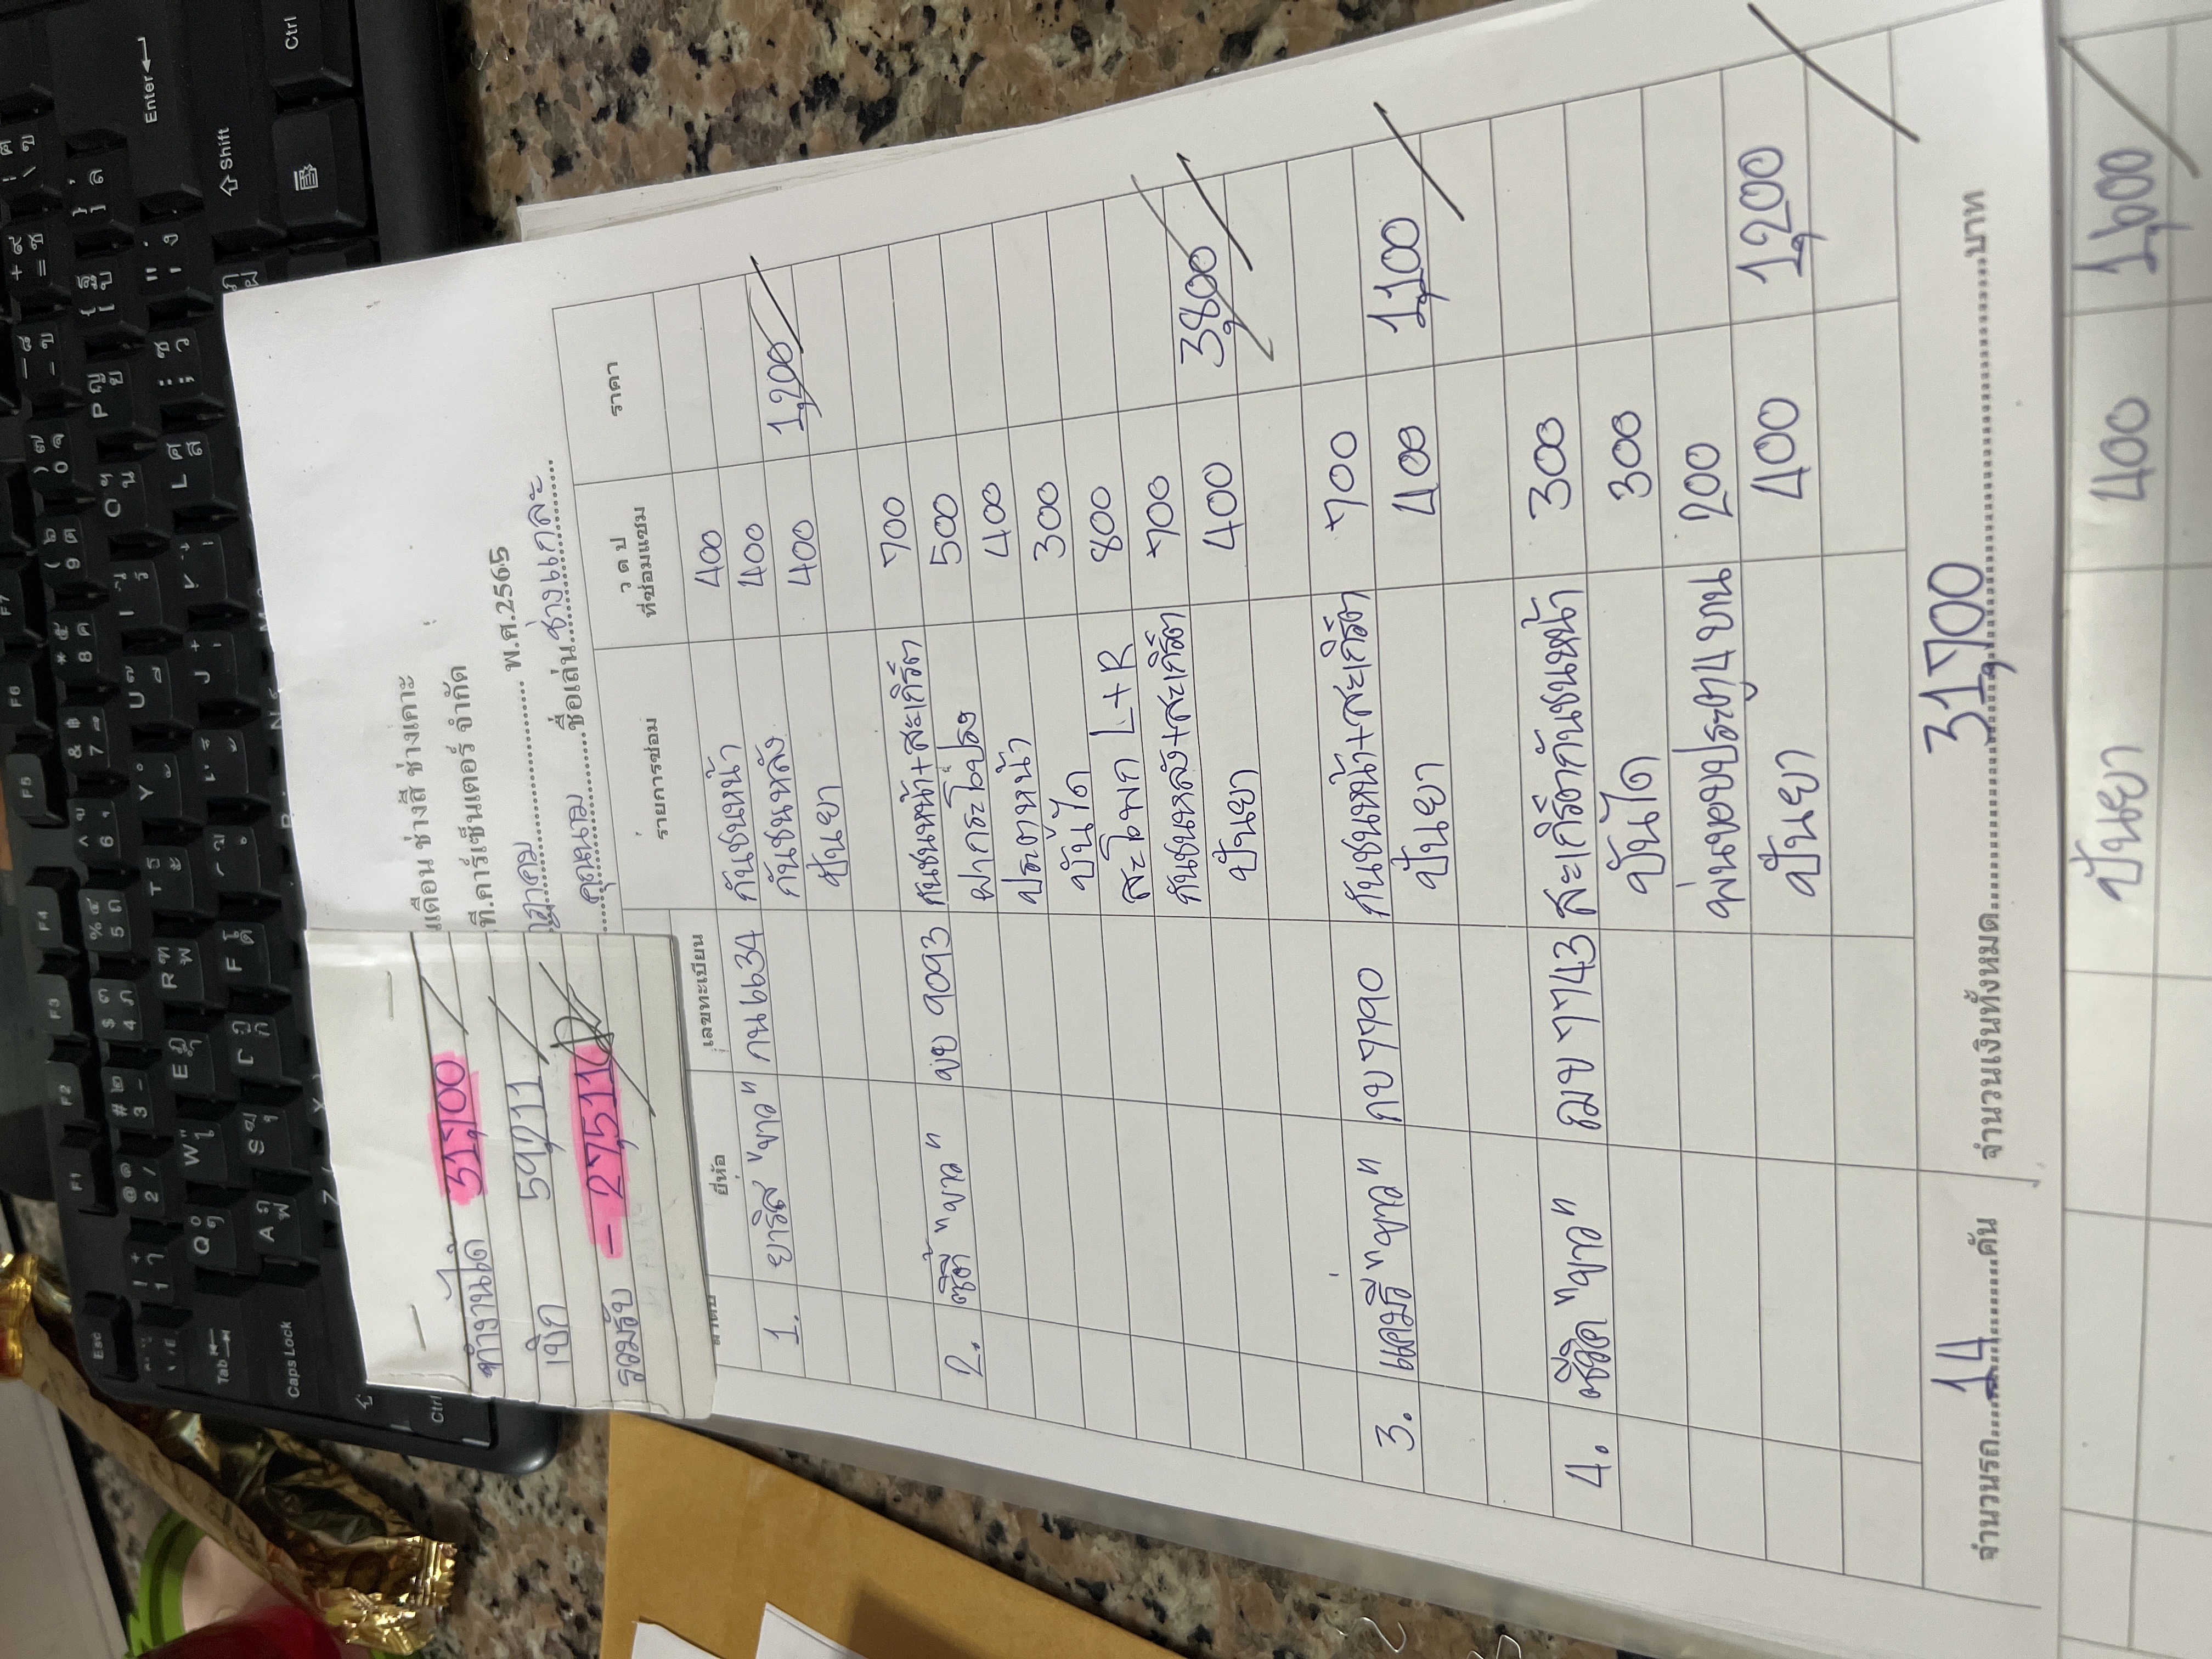 ทำงานได้ 31,700
เบิก 59,211
รวมรับ - 27,511
เดือน ช่างสี ช่างเคาะ
ที.คาร์เซ็นเตอร์ จำกัด
พ.ศ.2565
คุณนาม ชื่อเล่น ช่างแกละ
ยี่ห้อ เลขทะเบียน รายการซ่อม ว ด ป ที่ซ่อมแซม ราคา
1. ยาริส "ขาว" กน 6634 กันชนหน้า 400
กันชนหลัง 400
ปั่นยา 400 1,200
2. ซิตี้ "ขาว" 9093 กันชนหน้า+สะเกิร์ต 700
ฝากระโปรง 500
ประตูหน้า 400
บันได 300
สะโพก L+R 800
กันชนหลัง+สะเกิร์ต 700
ปั่นยา 400 3,800
3. แคมรี่ "ขาว" กบ 7790 กันชนหน้า+สะเกิร์ต 700
ปั่นยา 400 1,100
4. ซีวิค "ขาว" ฌข 7743 สะเกิร์ตกันชนหน้า 300
บันได 300
พ่นขอบประตู 4 บาน 200
ปั่นยา 400 1,200
จำนวนรถ 14 คัน จำนวนเงินทั้งหมด 31,700 บาท
ปั่นยา 400 1,600
Esc F1 F2 F3 F4 F5 F6 F7
Tab
Caps Lock
Enter
Shift
Ctrl